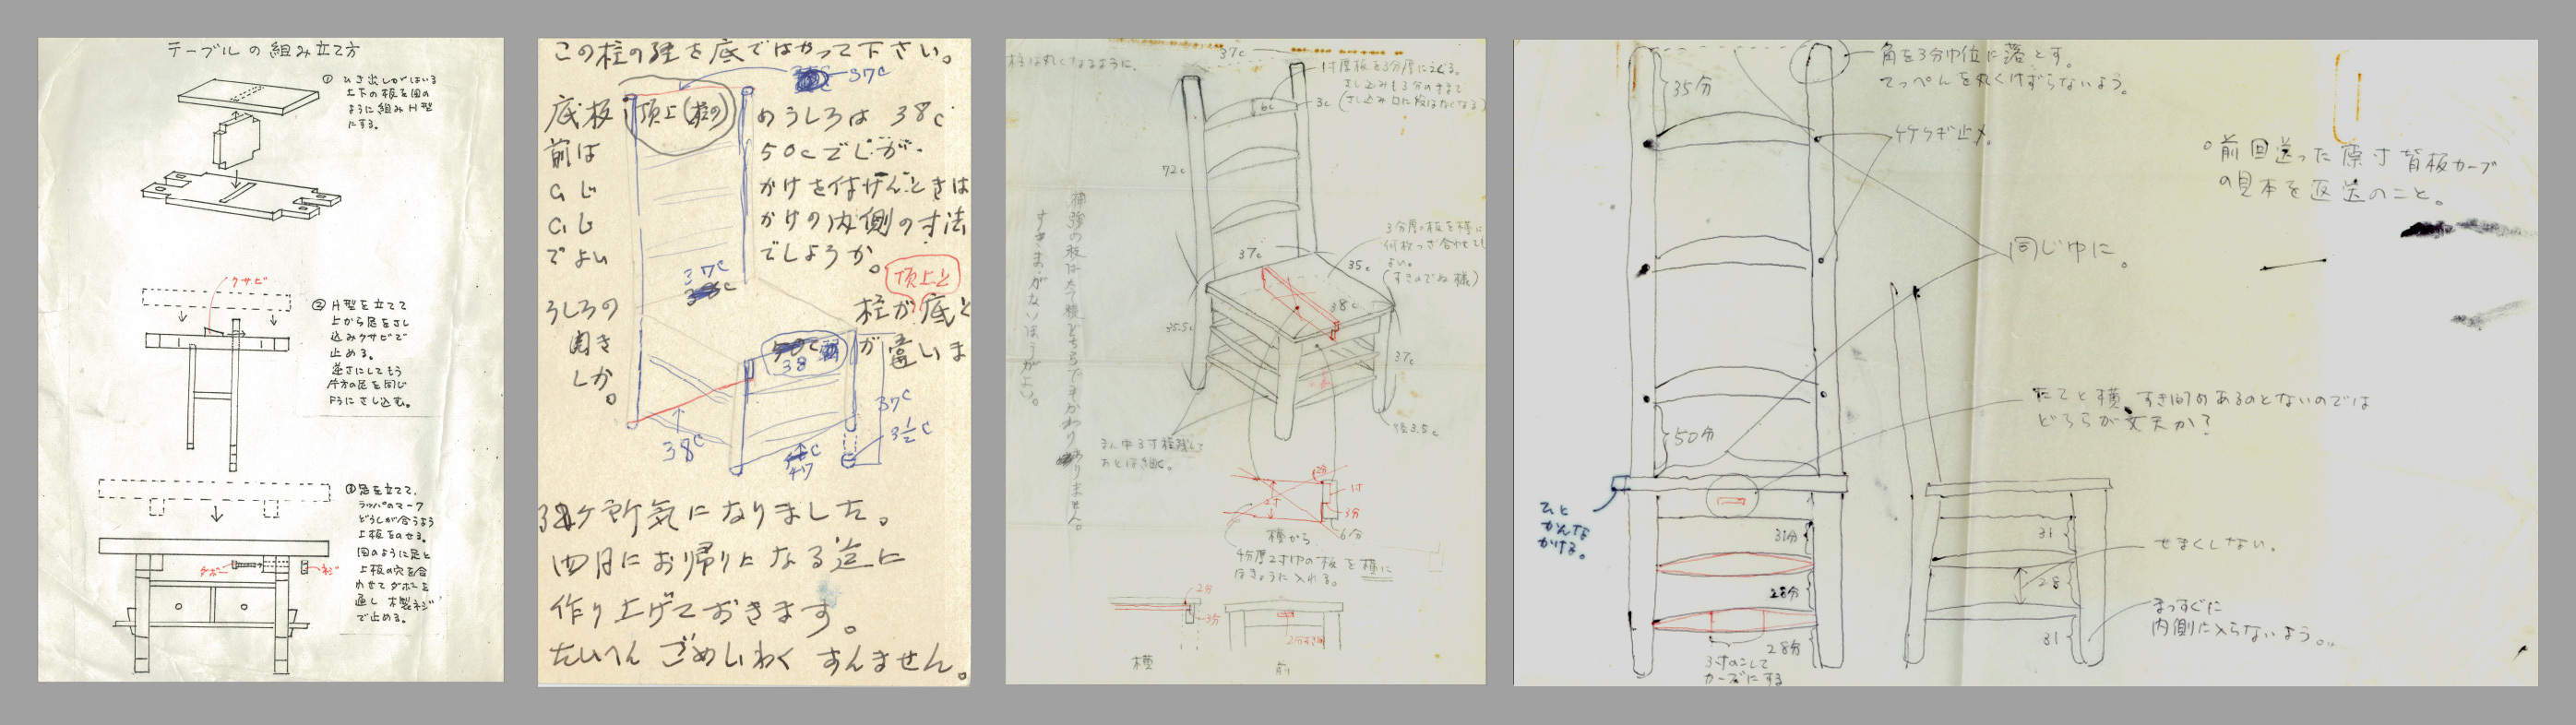 テーブルの組み立て方
① ひき出しがはいる
上下の板を図の
ように組みH型
にする。
クサビ
② H型を立てて
上から足をさし
込みクサビで
止める。
逆さにしてもう
片方の足を同じ
ようにさし込む。
③ 足を立てて、
ラッパのマーク
どうしが合うよう
上板をのせる。
図のように足と
上板の穴を合
わせてダボーを
通し 木製ネジ
で止める。
ダボー
ネジ
この柱の
を底ではかって下さい。
37c
底板
頂上(柱の)
のうしろは 38c
前は
50cでしが
おじ
かけを付けんときは
おじ
かけの内側の寸法
でよい
でしょうか。
37c
頂上と
うしろの
柱が底と
開き
が違いま
しか。
38
38c
37c
3½c
47
ケ所気になりました。
四月にお帰りになる迄に
作り上げておきます。
たいへん ごめいわく すんません。
37c
柱は丸くなるように。
寸厚板を3分厚にえぐる。
さし込みも3分のままで
(さし込み口に段はなくなる)
6c
3c
72c
補強の板はたて横どちらでもかわりありません。
すきまがないほうがよい。
3分厚の板を横に
何枚つぎ合わせても
よい。
(すきのでぬ様)
37c
35c
38c
35.5c
37c
径3.5c
まん中3寸程残して
あとは細く。
2分
1寸
3分
6分
横から
4分厚2寸巾の板を横に
ほきょうに入れる。
2分
3分
2分すき間
横
前
角を3分巾位に落とす。
てっぺんを丸くけずらないよう。
35分
クギ止メ。
○前回送った原寸背板カーブ
の見本を返送のこと。
同じ巾に。
たてと横、すき間のあるのとないのでは
どちらが丈夫か?
50分
ひと
かんな
かける。
31分
28分
28分
3寸のこして
カーブにする
31
28
31
せまくしない。
まっすぐに
内側に入らないよう。